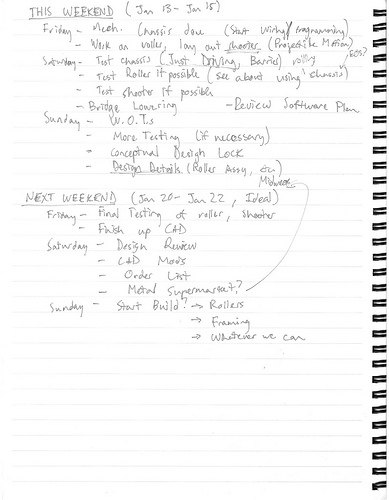 THIS WEEKEND (Jan 13 - Jan 15)
Friday - Mech. Chassis done (Start Wiring/Programming)
- Work on roller, lay out shooter (Projectile Motion)
Saturday - Test chassis (Just Driving, Barrier) rolling
- Test Roller if possible (see about using chassis)
- Test shooter if possible
- Bridge Lowering - Review Software Plan
Sunday - W.O.T.s
- More Testing (if necessary)
- Conceptual Design Lock
- Design Details (Roller Assy, etc.)
Midweek
NEXT WEEKEND (Jan 20 - Jan 22, Ideal)
Friday - Final Testing of roller, shooter
- Finish up CAD
Saturday - Design Review
- CAD Mods
- Order List
- Metal Supermarket?
Sunday - Start Build? → Rollers
→ Framing
→ Whatever we can